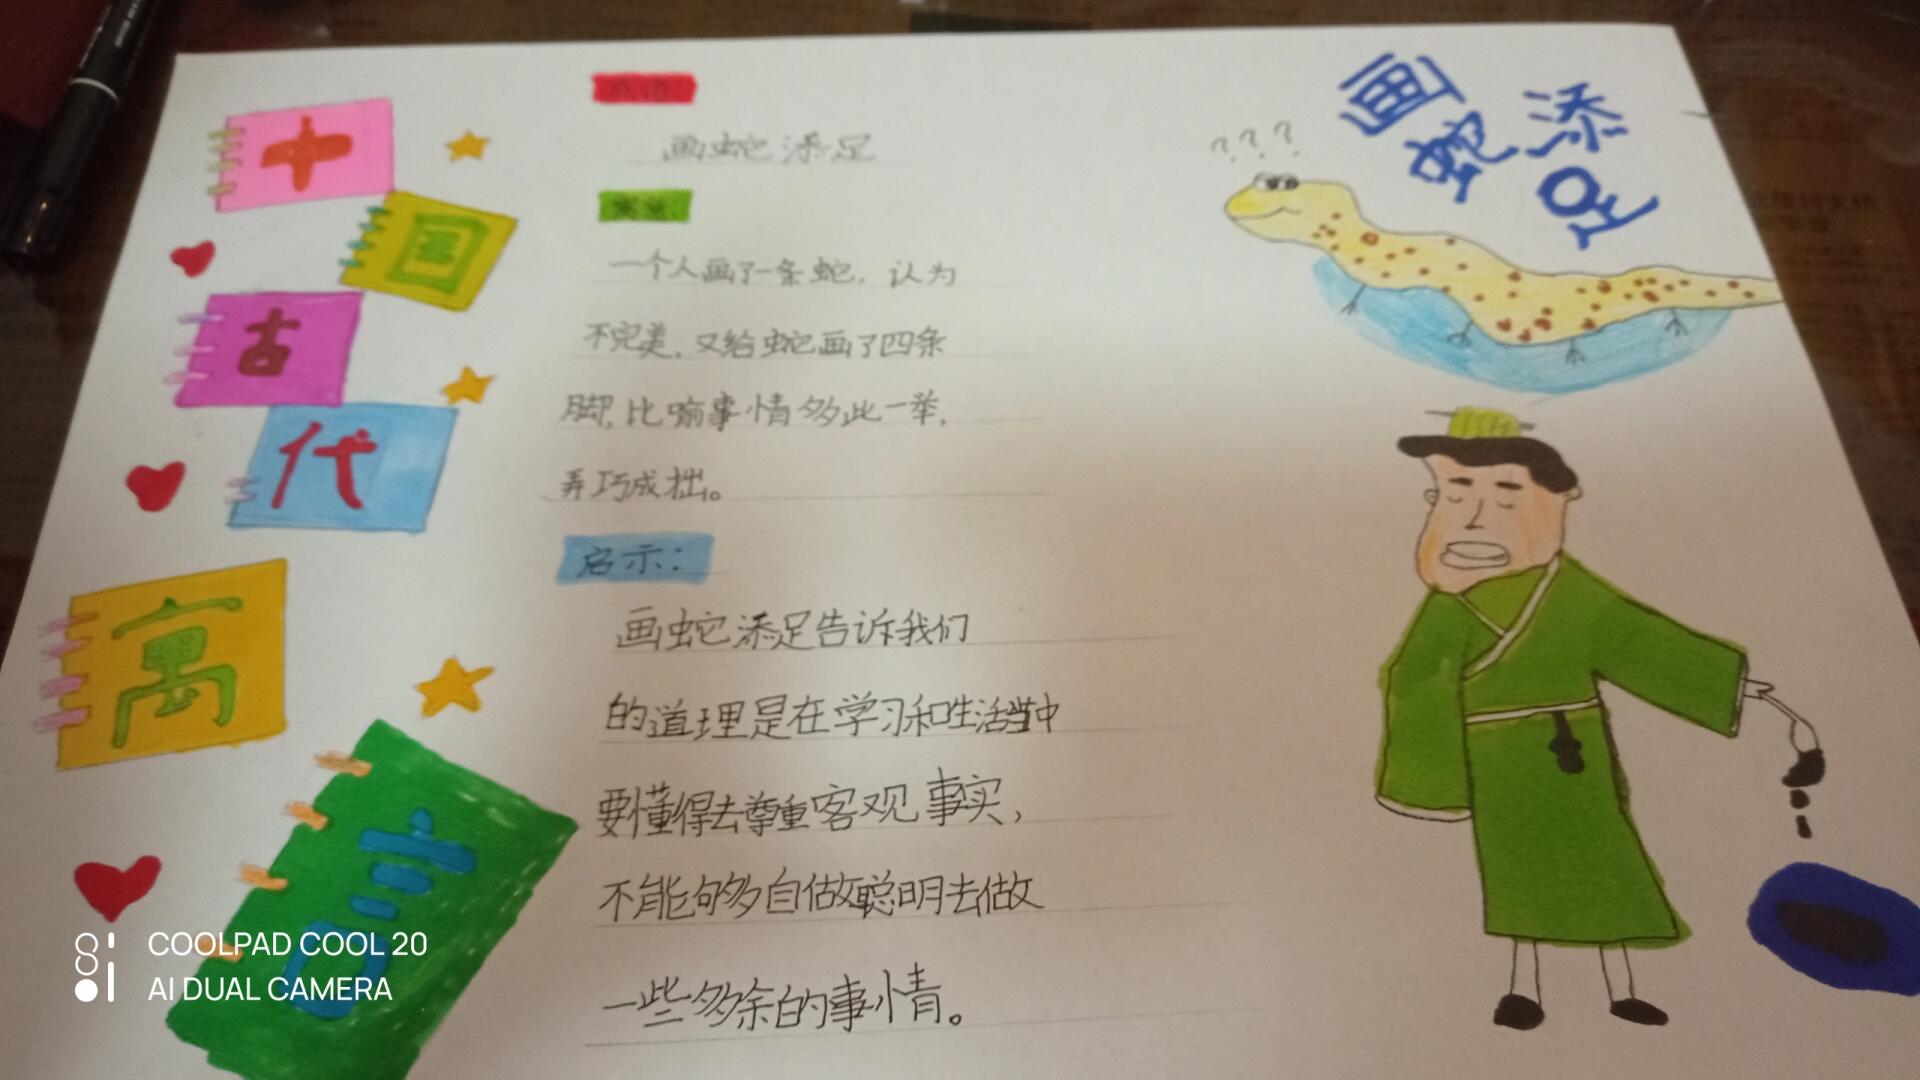 中
国
古
代
寓
言
成语
画蛇添足
寓意
一个人画了一条蛇，认为
不完美，又给蛇画了四条
脚，比喻事情多此一举，
弄巧成拙。
启示：
画蛇添足告诉我们
的道理是在学习和生活当中
要懂得去尊重客观事实，
不能够自做聪明去做
一些多余的事情。
画蛇添足
???
COOLPAD COOL 20
AI DUAL CAMERA